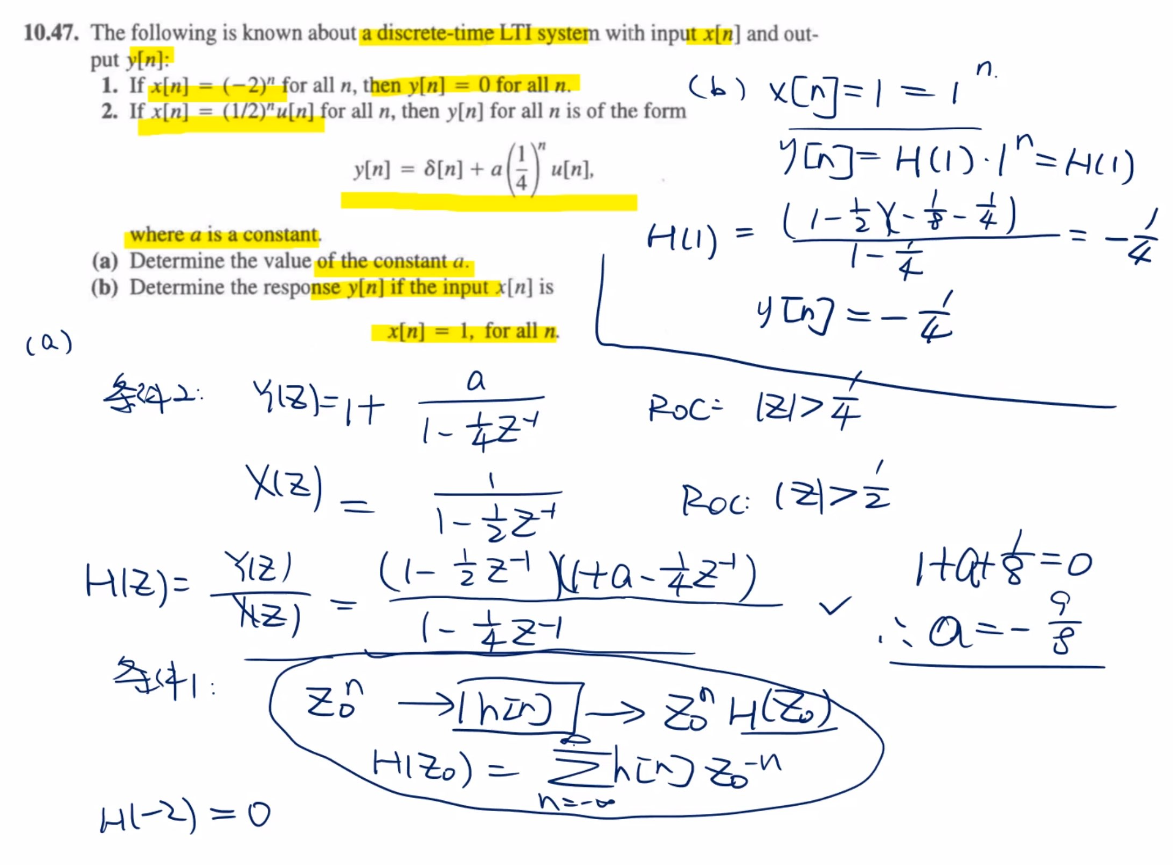 10.47. The following is known about a discrete-time LTI system with input x[n] and out-
put y[n]:
1. If x[n] = (−2)ⁿ for all n, then y[n] = 0 for all n.
2. If x[n] = (1/2)ⁿu[n] for all n, then y[n] for all n is of the form
y[n] = δ[n] + a(1/4)ⁿ u[n],
where a is a constant.
(a) Determine the value of the constant a.
(b) Determine the response y[n] if the input x[n] is
x[n] = 1, for all n.
(b) x[n]=1 = 1ⁿ
y[n]= H(1)·1ⁿ=H(1)
H(1) = (1-1/2)(-1/8-1/4)/(1-1/4) = -1/4
y[n] = -1/4
(a)
条件2: Y(Z)=1+ a/(1-1/4 Z⁻¹) ROC: |Z|>1/4
X(Z) = 1/(1-1/2 Z⁻¹) ROC: |Z|>1/2
H(Z)= Y(Z)/X(Z) = (1-1/2 Z⁻¹)(1+a-1/4 Z⁻¹)/(1-1/4 Z⁻¹) ✓
1+a+1/8=0
∴ a=-9/8
条件1:
Z₀ⁿ → h[n] → Z₀ⁿ H(Z₀)
H(Z₀) = ∑_{n=-∞}^{∞} h[n] Z₀⁻ⁿ
H(-2) = 0